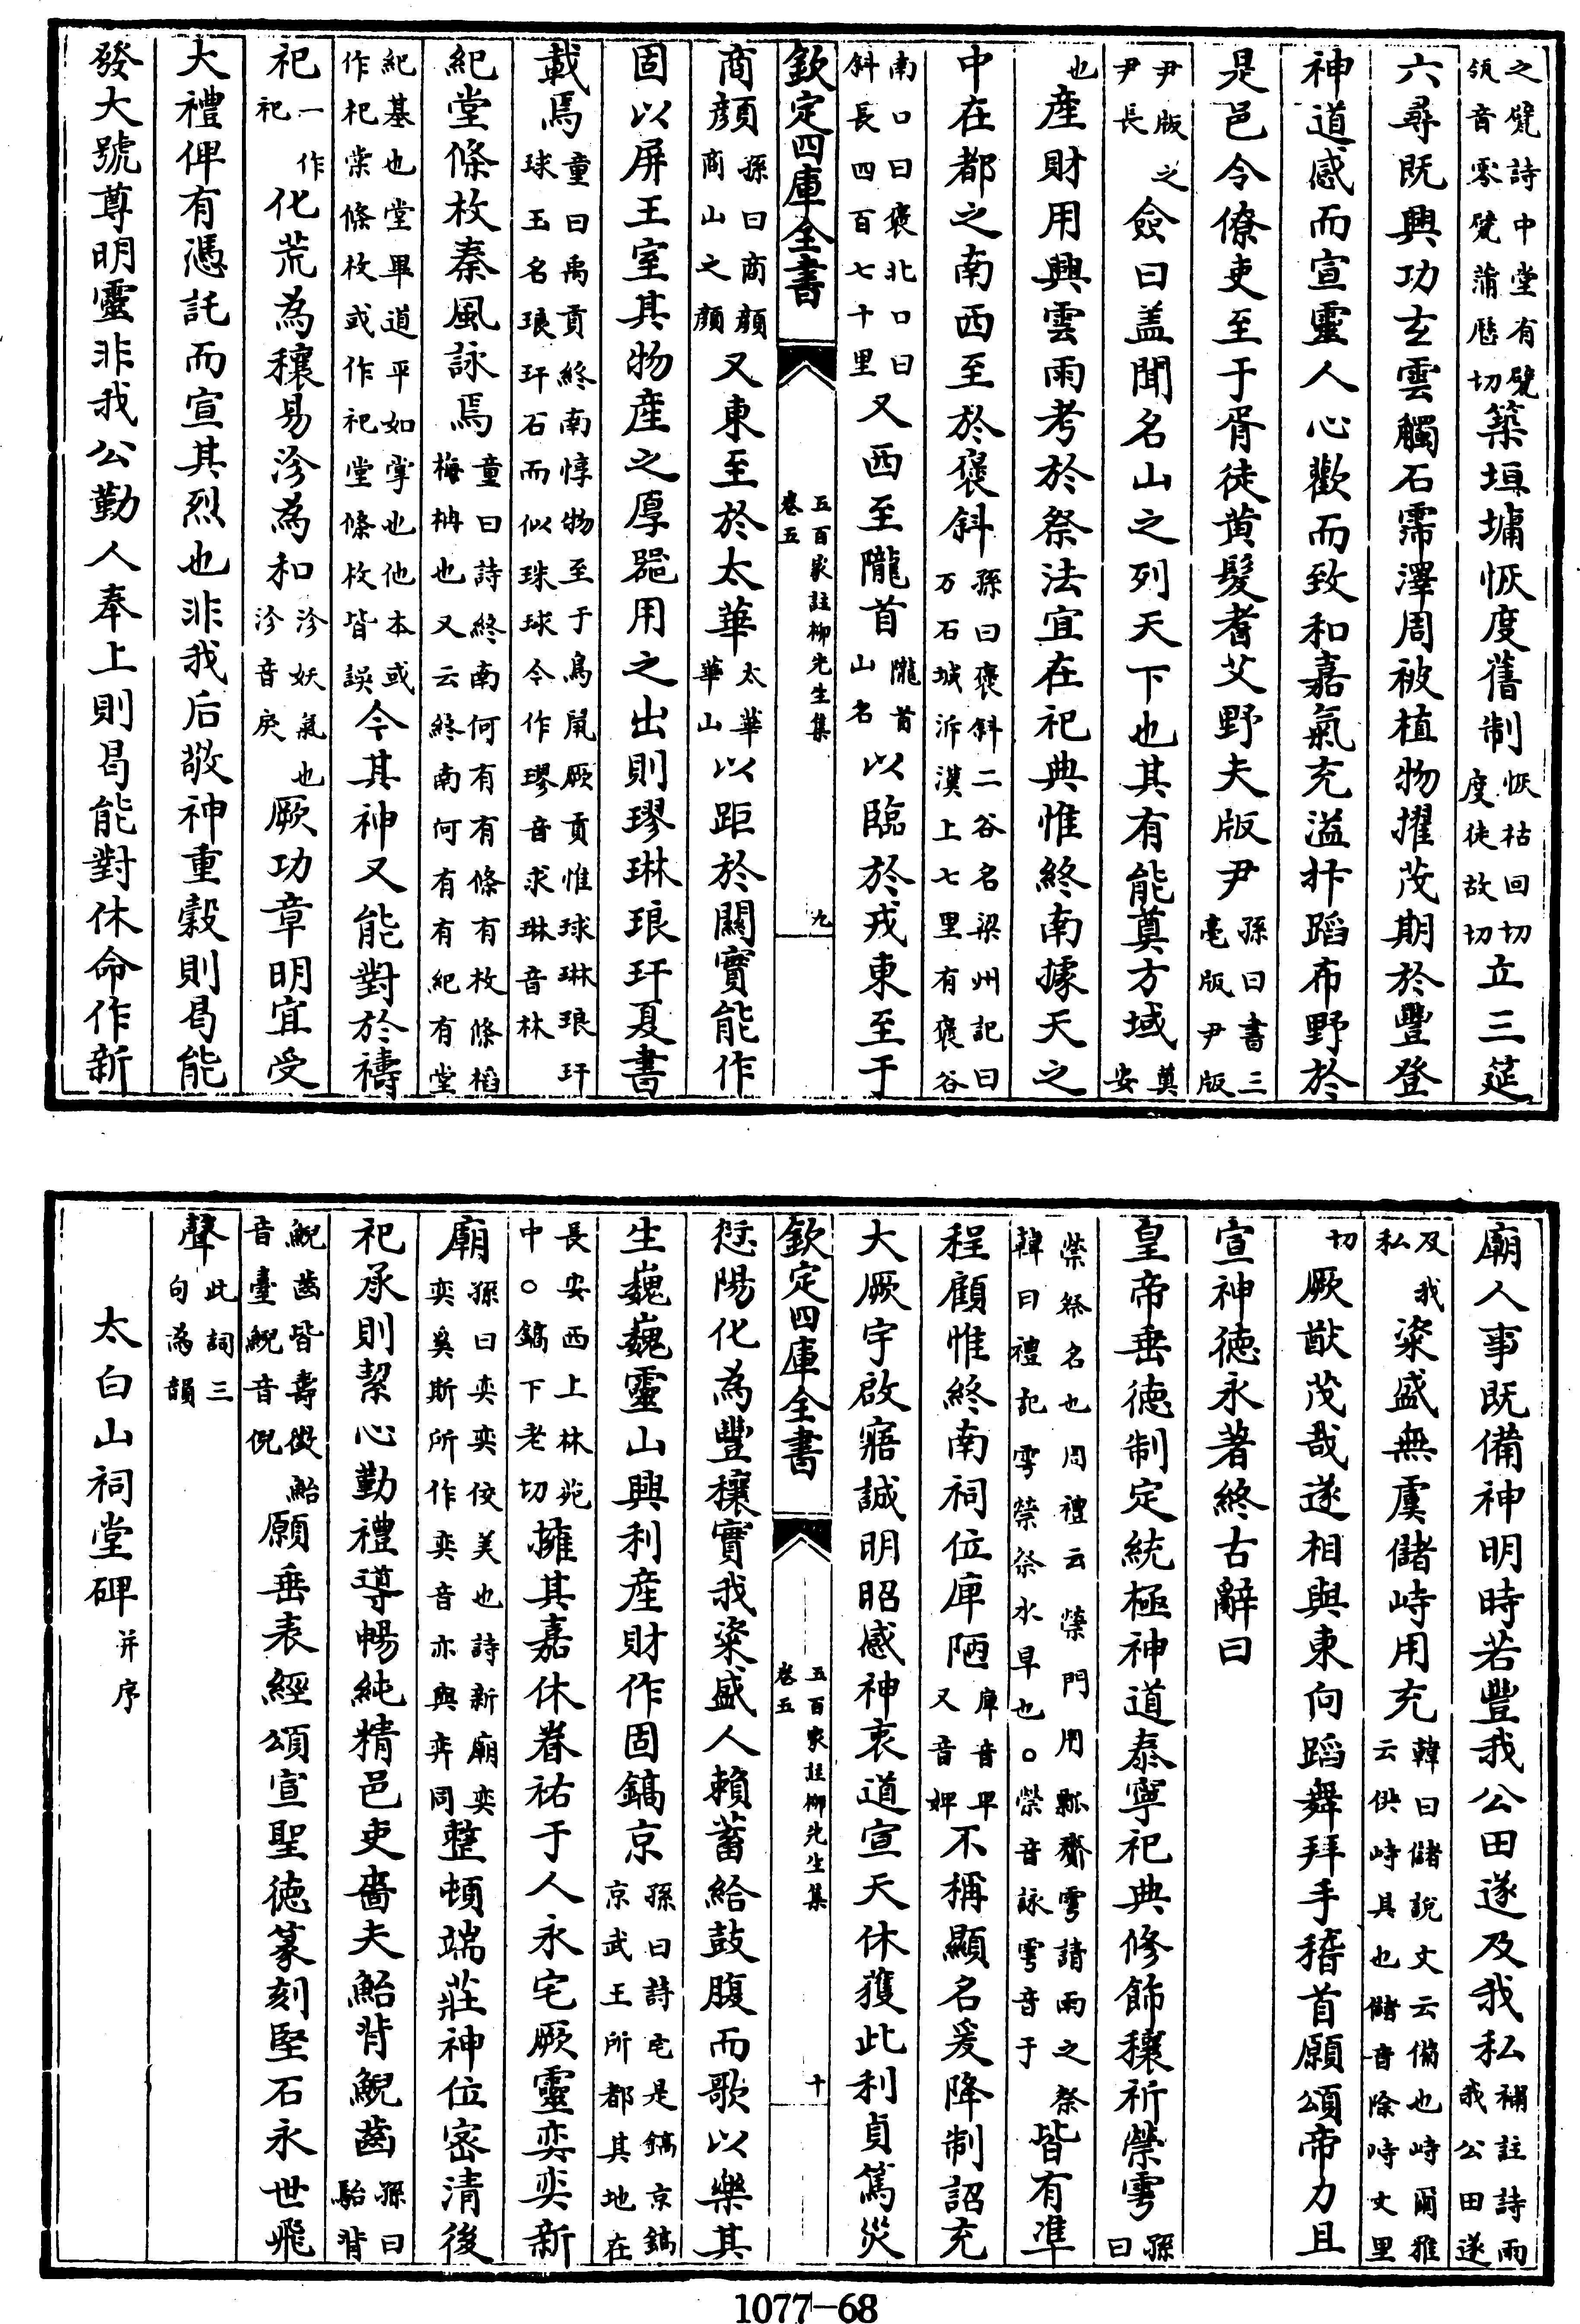 之甓詩中堂有甓瓴音零甓蒲厯切築垣墉恢度舊制恢枯回切度徒故切立三筵
六尋既興功玄雲觸石霈澤周被植物擢茂期於豐登
神道感而宣靈人心歡而致和嘉氣充溢抃蹈布野於
是邑令僚吏至于胥徒黄髮耆艾野夫版尹孫曰書三亳版尹版
尹版之尹長僉曰盖聞名山之列天下也其有能奠方域奠安
也産財用興雲雨考於祭法宜在祀典惟終南據天之
中在都之南西至於褒斜孫曰褒斜二谷名梁州記曰万石城泝漢上七里有褒谷
南口曰褒北口曰斜長四百七十里又西至隴首隴首山名以臨於戎東至于
欽定四庫全書 五百家註柳先生集 卷五 九
商顔孫曰商顔商山之顔又東至於太華太華華山以距於關實能作
固以屏王室其物産之厚器用之出則璆琳琅玕夏書
載焉童曰禹貢終南惇物至于鳥鼠厥貢惟球琳琅玕球玉名琅玕石而似珠球今作璆音求琳音林
紀堂條枚秦風詠焉童曰詩終南何有有條有枚條槄梅柟也又云終南何有有紀有堂
紀基也堂畢道平如掌也他本或作杞棠條枚或作祀堂條枚皆誤今其神又能對於禱
祀一作祀化荒為穰易沴為和沴妖氣也沴音戾厥功章明宜受
大禮俾有憑託而宣其烈也非我后敬神重穀則曷能
發大號尊明靈非我公勤人奉上則曷能對休命作新
廟人事既備神明時若豐我公田遂及我私補註詩雨我公田遂
及我私粢盛無虞儲峙用充韓曰儲說文云偹也峙爾雅云供峙具也儲音除峙丈里
切厥猷茂哉遂相與東向蹈舞拜手稽首願頌帝力且
宣神徳永著終古辭曰
皇帝垂徳制定統極神道泰寧祀典修飾穰祈禜雩孫曰
禜祭名也周禮云禜門用瓢齎雩請雨之祭韓曰禮記雩禜祭水旱也○禜音詠雩音于皆有凖
程顧惟終南祠位庳陋庳音卑又音婢不稱顯名爰降制詔充
大厥宇啟寤誠明昭感神衷道宣天休獲此利貞篤災
欽定四庫全書 五百家註柳先生集 卷五 十
愆陽化為豐穰實我粢盛人賴蓄給鼓腹而歌以樂其
生巍巍靈山興利産財作固鎬京孫曰詩宅是鎬京鎬京武王所都其地在
長安西上林苑中○鎬下老切擁其嘉休眷祐于人永宅厥靈奕奕新
廟孫曰奕奕佼美也詩新廟奕奕奚斯所作奕音亦與弈同整頓端莊神位宻清後
祀承則絜心勤禮導暢純精邑吏嗇夫鮐背鯢齒孫曰鮐背
鯢齒皆壽徴鮐音臺鯢音倪願垂表經頌宣聖徳篆刻堅石永世飛
聲此詞三句為韻
太白山祠堂碑并序
1077-68